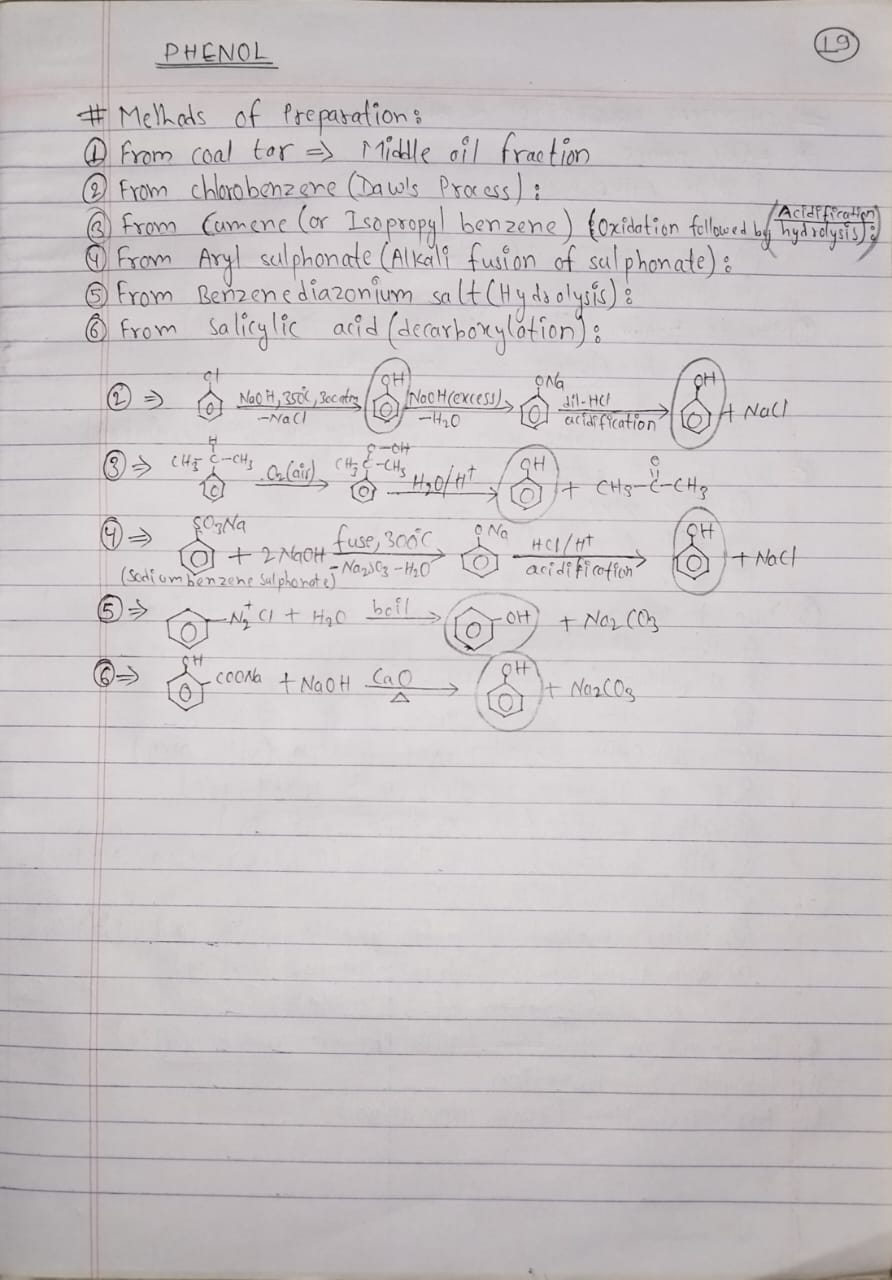 PHENOL
19
# Methods of Preparation:
① From coal tar ⇒ Middle oil fraction
② From chlorobenzene (Daw's Process):
③ From Cumene (or Isopropyl benzene) (Oxidation followed by (Acidification/hydrolysis):
④ From Aryl sulphonate (Alkali fusion of sulphonate):
⑤ From Benzenediazonium salt (Hydrolysis):
⑥ From Salicylic acid (decarboxylation):
② ⇒ Cl NaOH, 350°C, 300atm -NaCl OH NaOH(excess) -H2O ONa dil-HCl acidification OH + NaCl
③ ⇒ CH3-C-CH3 H O2(air) O-OH CH3-C-CH3 H2O/H+ OH + CH3-C-CH3 O
④ ⇒ SO3Na + 2NaOH fuse, 300°C -Na2SO3 -H2O ONa HCl/H+ acidification OH + NaCl
(Sodium benzene sulphonate)
⑤ ⇒ N2+Cl + H2O boil OH + Na2CO3
⑥ ⇒ OH COONa + NaOH CaO Δ OH + Na2CO3